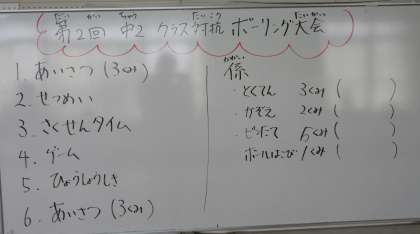 第2回 中2 クラス対抗 ボーリング大会
1. あいさつ (3くみ)
2. せつめい
3. さくせんタイム
4. ゲーム
5. ひょうしょうしき
6. あいさつ (3くみ)
係
・とくてん 3くみ ( )
・かぞえ 2くみ ( )
・ピンたて 5くみ ( )
ボールはこび 1くみ ( )